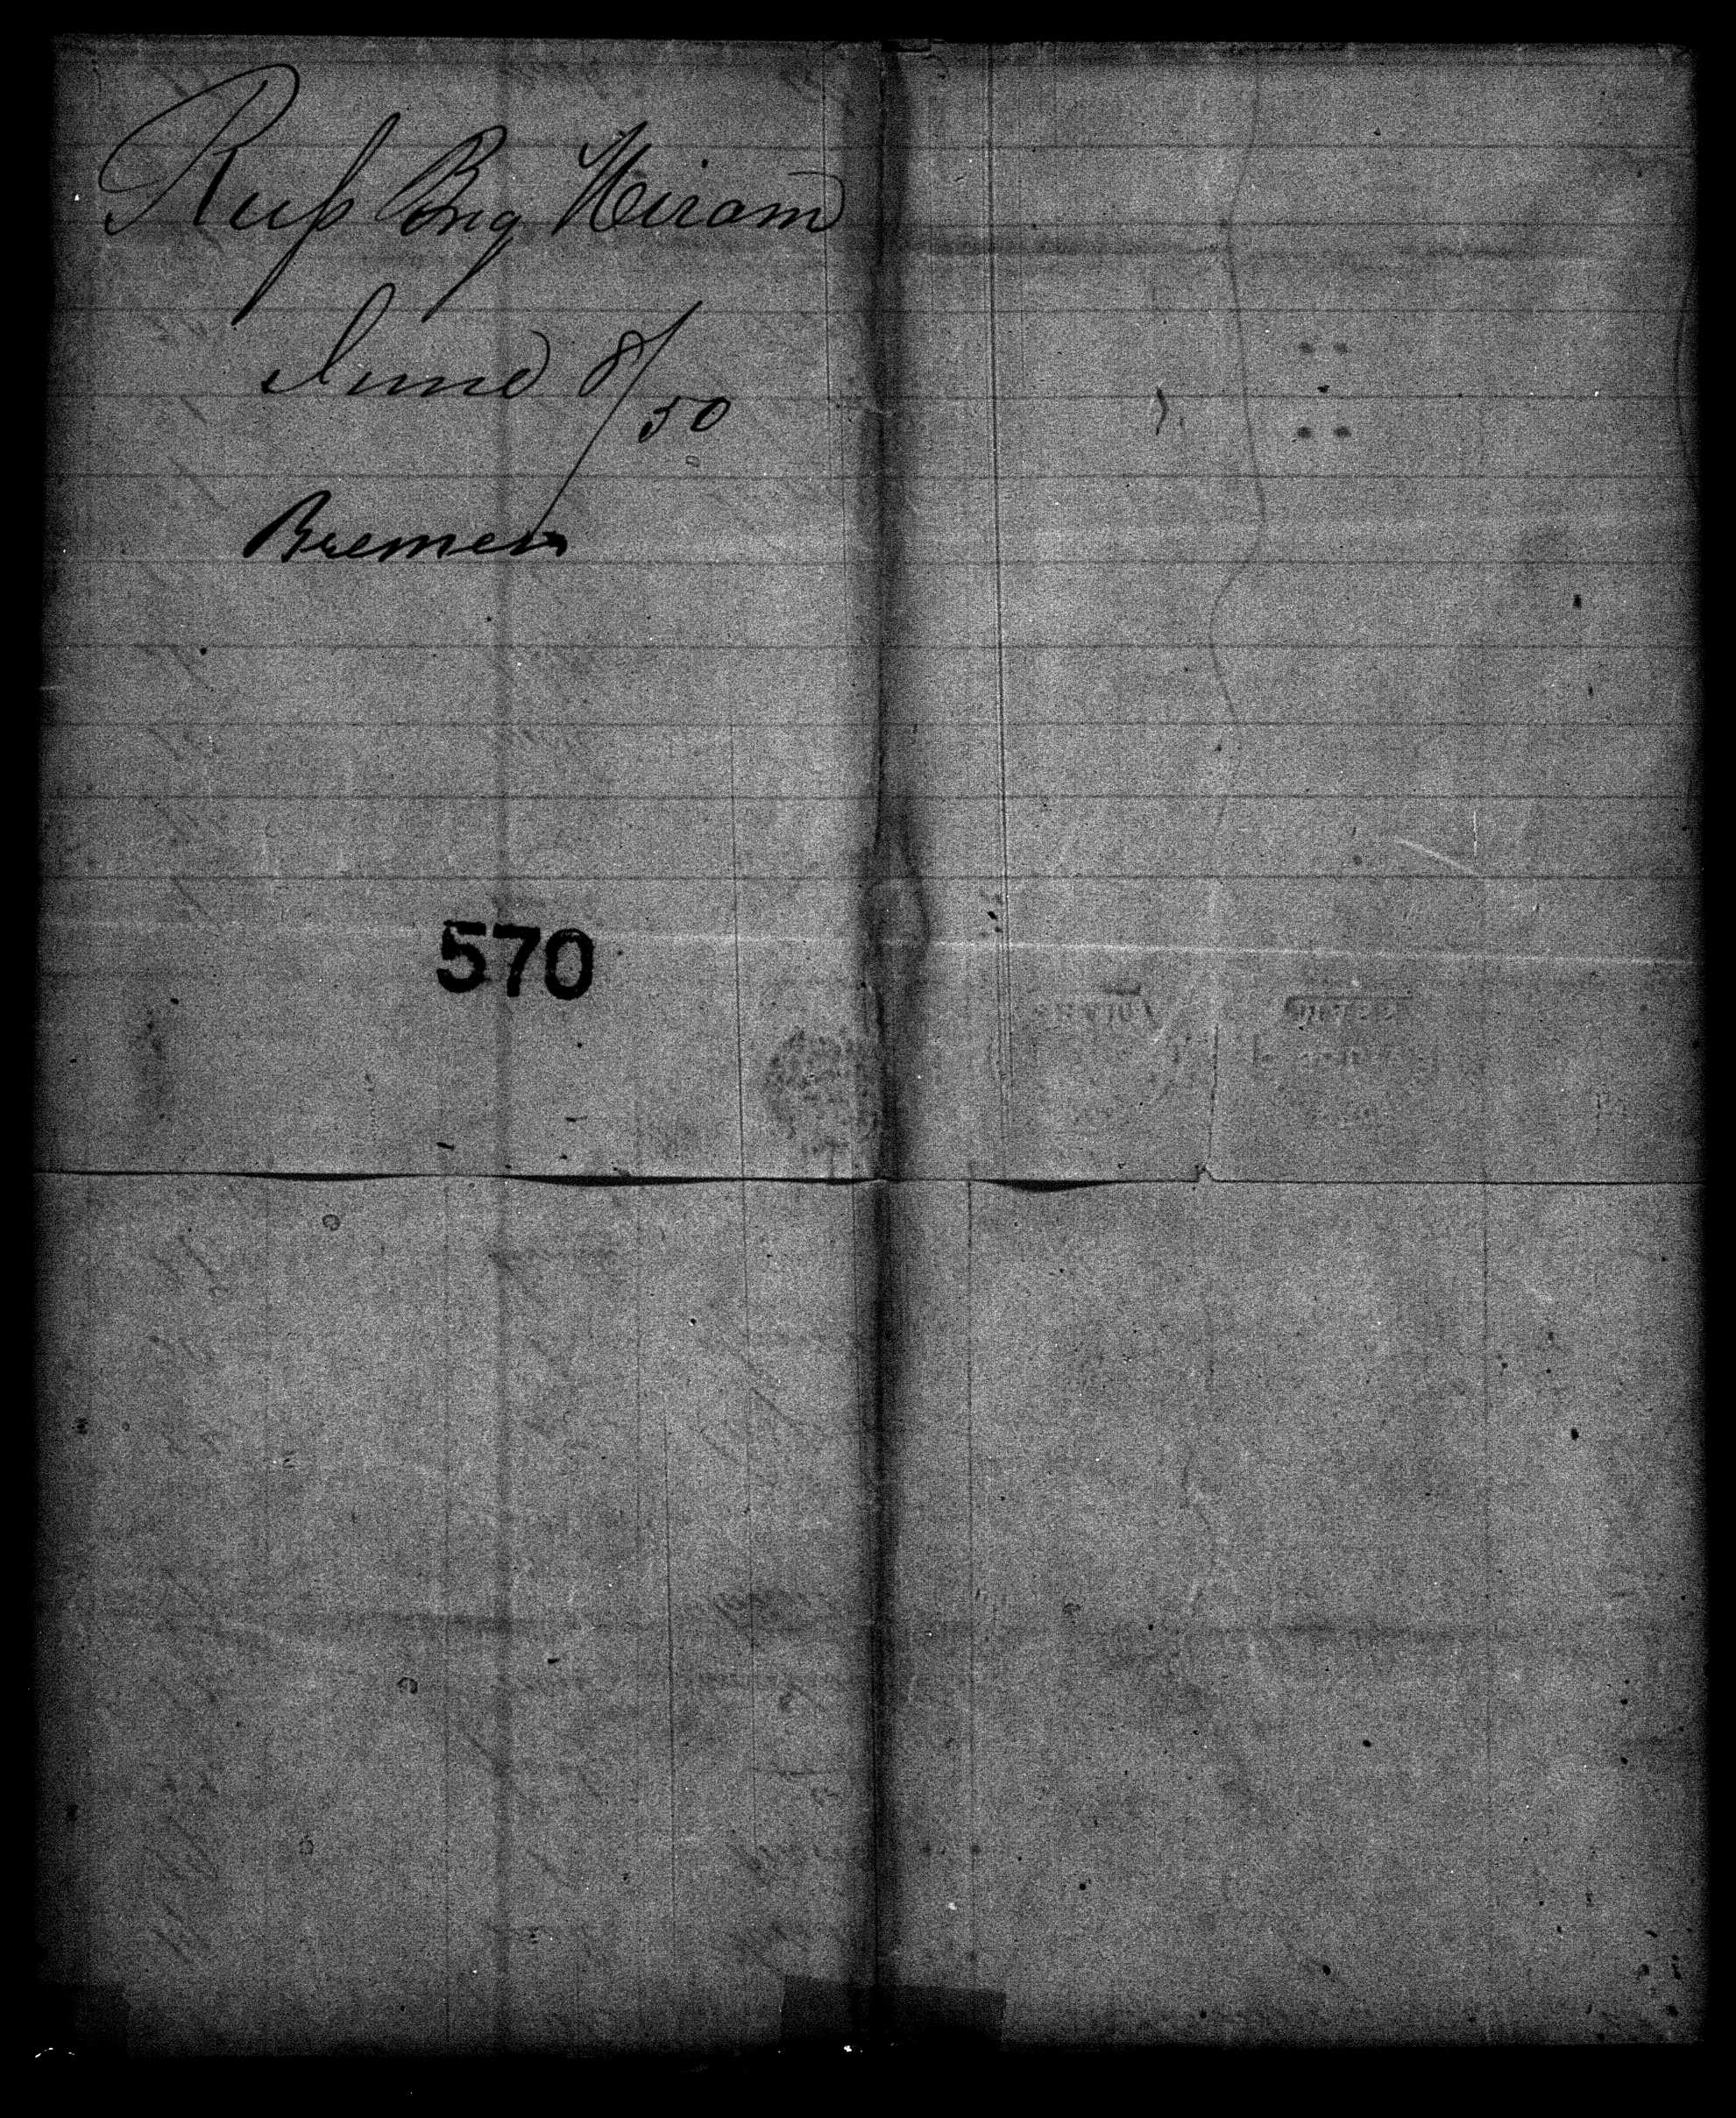 Russ Brig Hiram
June 8/50
Bremen
570